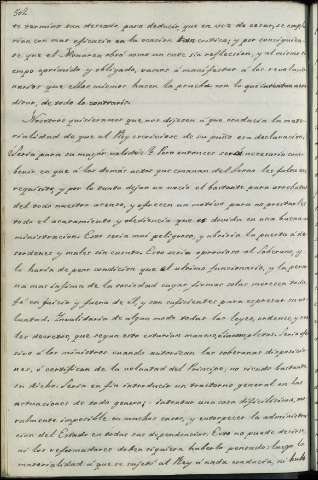 504
te termino sin decreto, para deducir, que en vez de cesar, se emplearian con mas eficacia en la ocasion critica; y por consiguiente que el Monarca obró como un ente sin reflexion, y al mismo tiempo oprimido y obligado, vamos á manifestar á los revolucionarios que ellos mismos hacen la prueba con lo que intentan
dicen, de todo lo contrario.
Nosotros quisieramos que nos dijesen á que conducia la materialidad de que el Rey escribiese de su puño esa declaracion.
¿Seria para su mayor validez? Pero entonces será necesario convenir en que á los demás actos que emanan del Trono les falta ese
requisito, y por lo tanto dejan un vacio el bastante para
del todo nuestro acenso, y ofrecen un motivo para no prestarles
todo el acatamiento y obediencia que es devida en una buena administracion. Esto seria mui peligroso, y abriria la puerta á desordenes y males sin cuento. Esto seria oprovioso al Soberano, y
le haria de peor condicion que el ultimo funcionario, y la persona mas infima de la sociedad cuyas firmas solas merecen toda
fé en juicio y fuera de él, y son suficientes para espresar su voluntad. Invalidaria de algun modo todas las leyes, ordenes, y reales decretos, que segun esto estarian mancos é incompletos. Seria ofensivo á los ministros cuando autorizan las soberanas disposiciones, ó certifican de la voluntad del Principe, no siendo bastante
su dicho. Seria en fin introducir un trastorno general en las
actuaciones de todo genero; intentar una cosa dificilisima, moralmente imposible en muchos casos, y entorpecer la administracion del Estado en todas sus dependencias. Esto no puede decirse,
ni los reformadores deben siquiera haberlo pensado: luego la
materialidad á que se sujetó al Rey á nada conducia, ni hubo